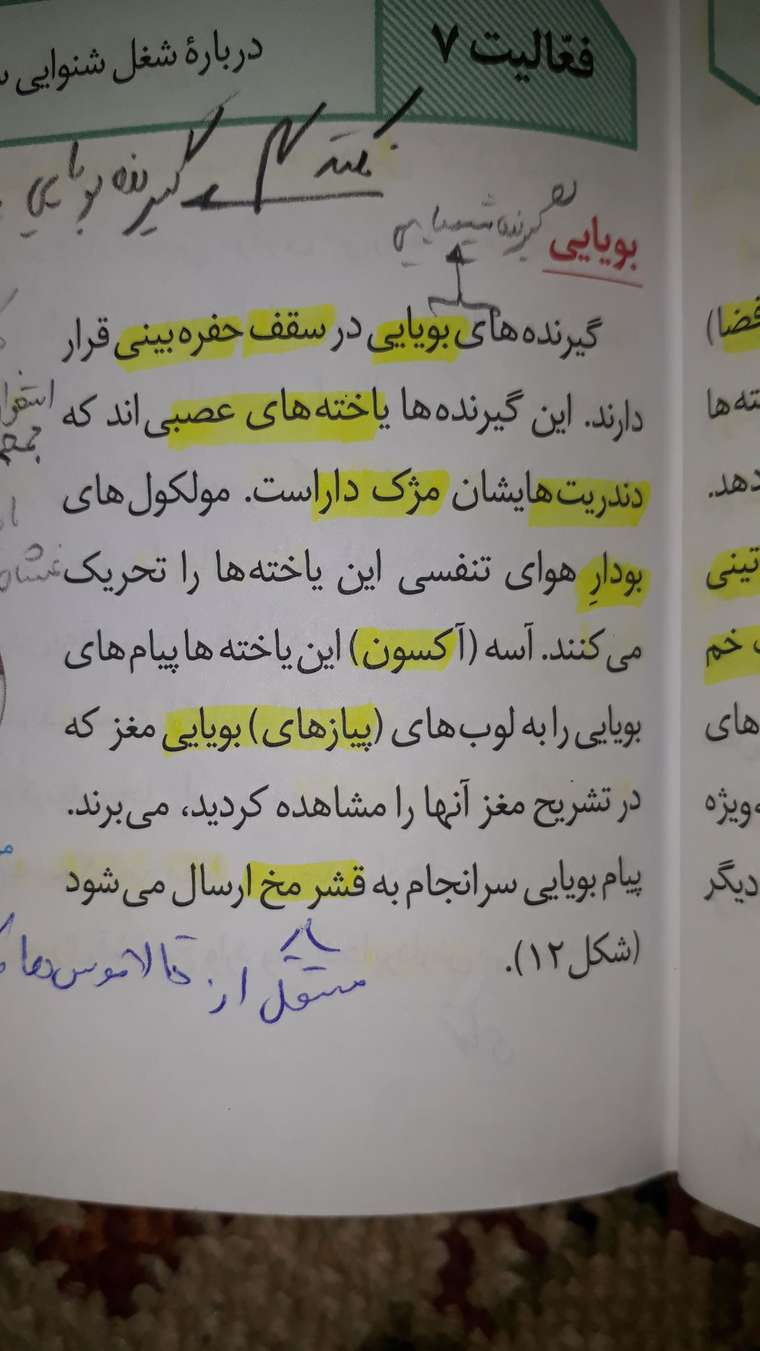 فعّالیت ۷
دربارهٔ شغل شنوایی
نکته گیرنده بویایی
گیرنده شیمیایی
بویایی
گیرنده‌های بویایی در سقف حفره بینی قرار
دارند. این گیرنده‌ها یاخته‌های عصبی‌اند که
دندریت‌هایشان مژک داراست. مولکول‌های
بودارِ هوای تنفسی این یاخته‌ها را تحریک
می‌کنند. آسه (آکسون) این یاخته ها پیام‌های
بویایی را به لوب‌های (پیازهای) بویایی مغز که
در تشریح مغز آنها را مشاهده کردید، می‌برند.
پیام بویایی سرانجام به قشر مخ ارسال می‌شود
(شکل ۱۲).
مستقل از تالاموس‌ها
فضا)
ته‌ها
دهد.
تینی
خم
های
ویژه
دیگر